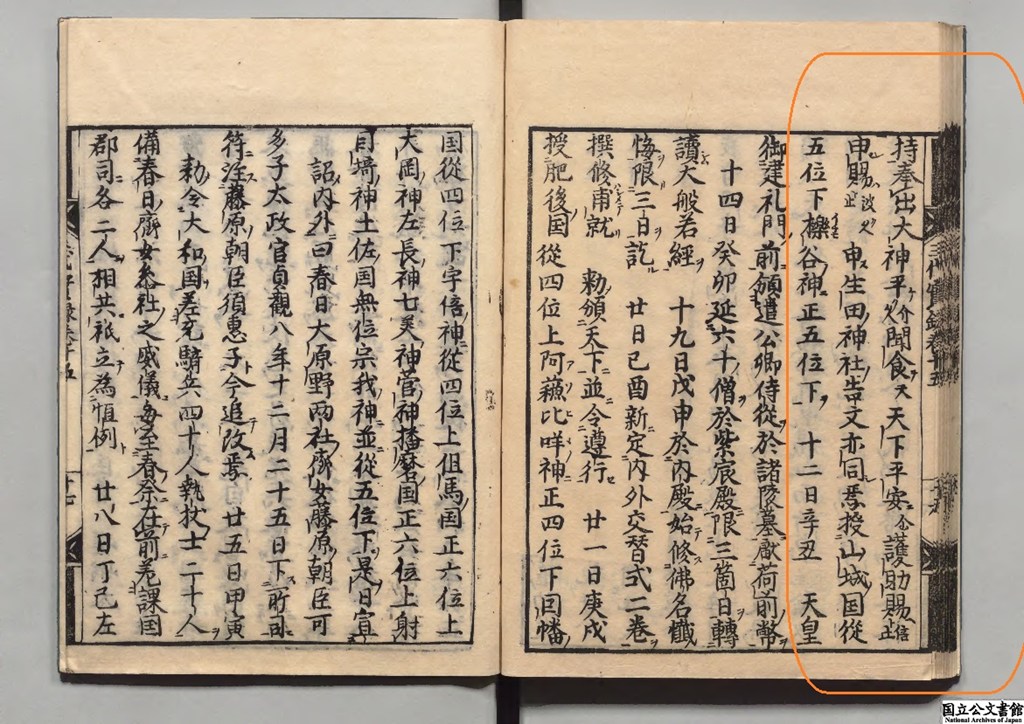 持奉出大神平介久聞食天天下平安令護助賜倍止
申賜波久止申生田神社告文亦同焉授山城国従
五位下櫟谷神正五位下十二日辛丑天皇
御建礼門前頒遣公卿侍従於諸陵墓献荷前幣
十四日癸卯延六十僧於紫宸殿限三箇日轉
讀大般若經十九日戊申於内殿始修佛名懺
悔限三日訖廿日己酉新定内外交替式二巻
撰修甫就勅頒天下並令遵行廿一日庚戌
授肥後国従四位上阿蘓比咩神正四位下因幡
国従四位下宇倍神従四位上但馬国正六位上
大岡神左長神七美神菅神播磨国正六位上射
目埼神土佐国無位宗我神並従五位下是日宣
詔内外曰春日大原野両社齊女藤原朝臣可
多子太政官貞觀八年十二月二十五日下所司
符注藤原朝臣須惠子今追改焉廿五日甲寅
勅令大和国差充騎兵四十人執杖士二十人
備春日齊女叅社之威儀毎至春祭在前差課国
郡司各二人相共祇立為恒例廿八日丁已左
国立公文書館
National Archives of Japan